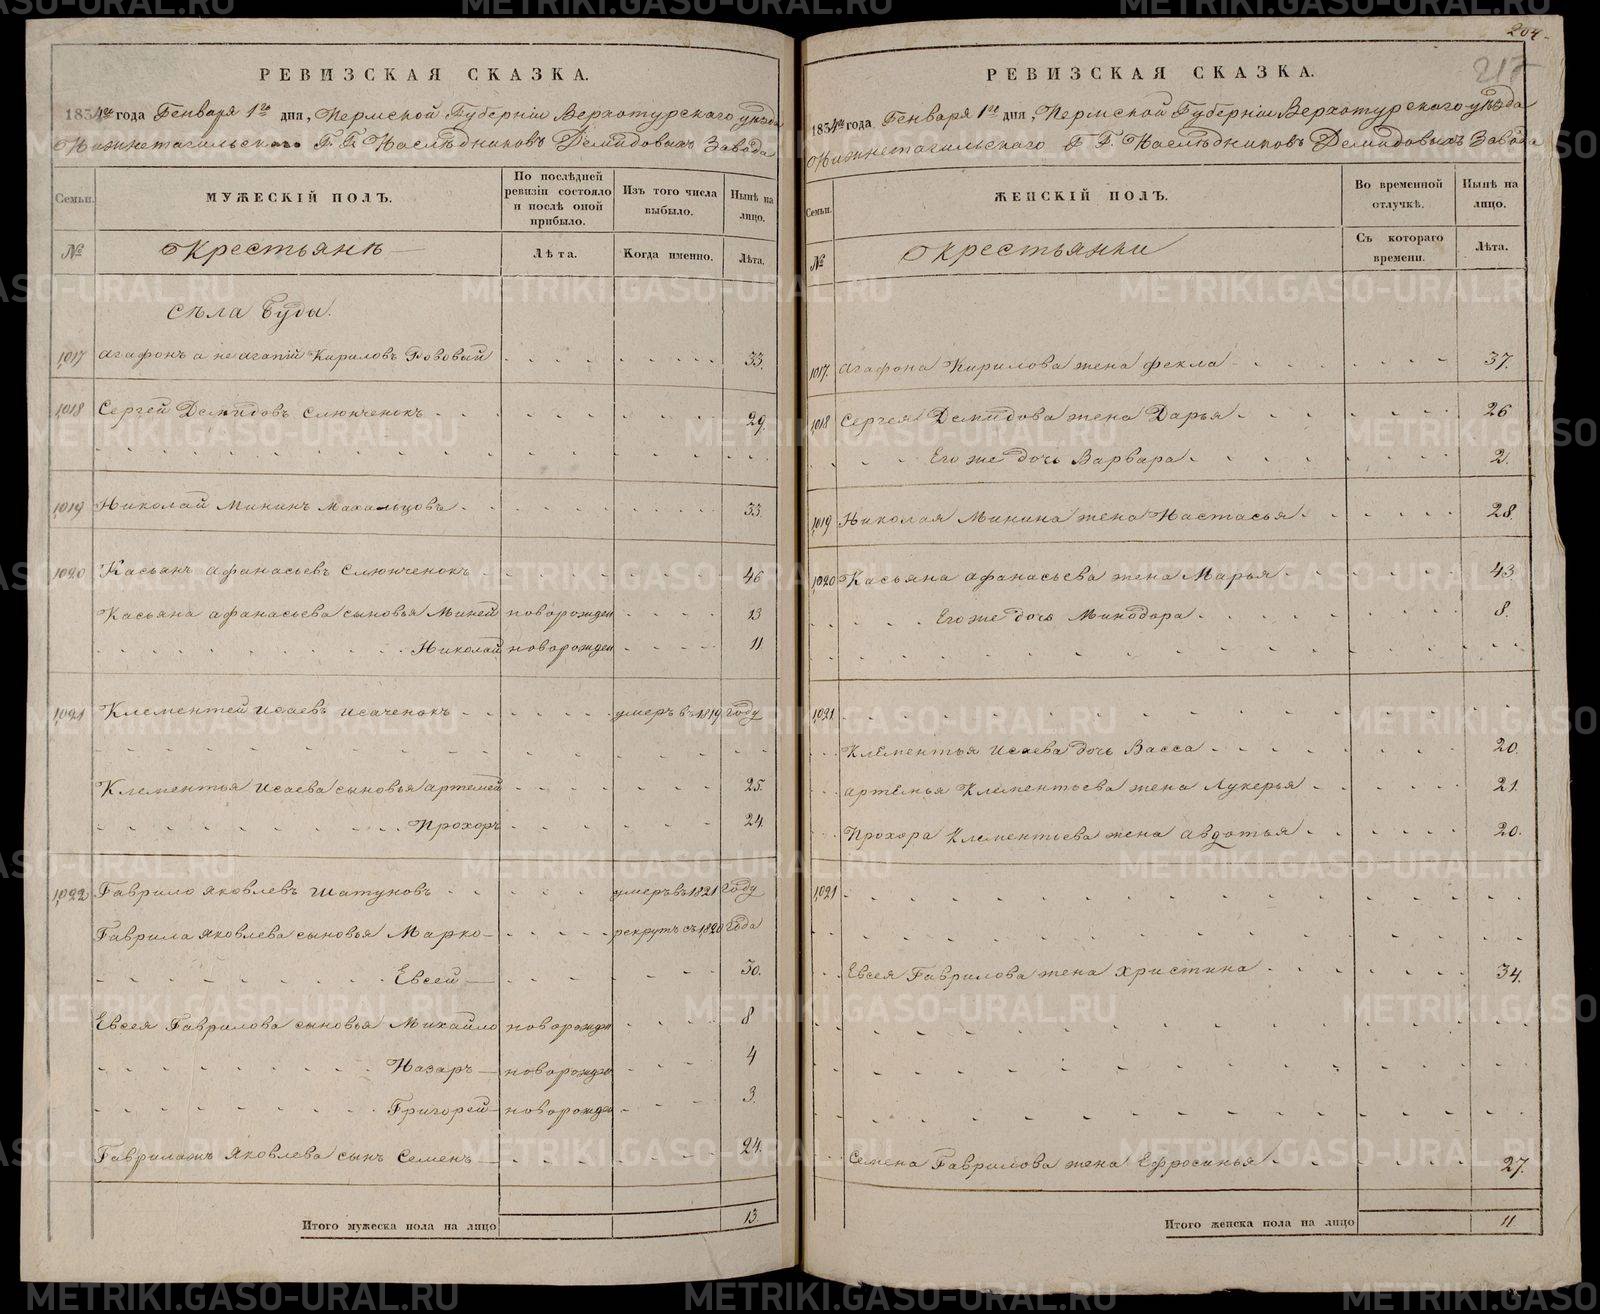 РЕВИЗСКАЯ СКАЗКА.
1834го года Генваря 1го дня, Пермской Губерніи Верхотурскаго уѣзда
Нижнетагильскаго Г. Г. Наслѣдниковъ Демидовыхъ Завода
Семьи.
МУЖЕСКІЙ ПОЛЪ.
По послѣдней ревизіи состояло и послѣ оной прибыло.
Изъ того числа выбыло.
Нынѣ на лицо.
№
Крестьянѣ
Лѣта.
Когда именно.
Лѣта.
Сѣла Буды.
1017 Агафонъ а не Агапій Кириловъ 33.
1018 Сергей Демидовъ Слюнченокъ 29.
1019 Николай Мининъ Махальцовъ 33
1020 Касьянъ Афанасьевъ Слюнченокъ 46
Касьяна Афанасьева сыновья Миней новорожден 13
Николай новорожден 11
1021 Клементей Исаевъ Исаченокъ умеръ въ 1819 году
Клементья Исаева сыновья Артемей 25.
Прохоръ 24.
1022 Гаврило Яковлевъ Шатуновъ умеръ въ 1821 году
Гаврила Яковлева сыновья Марко рекрутъ съ 1820 года
Евсей 30.
Евсея Гаврилова сыновья Михайло новорожден 8
Назаръ новорожден 4
Григорей новорожден 3.
Гаврилажъ Яковлева сынъ Семенъ 24.
Итого мужеска пола на лицо 13.
204.
217
РЕВИЗСКАЯ СКАЗКА.
1834го года Генваря 1го дня, Пермской Губерніи Верхотурскаго уѣзда
Нижнетагильскаго Г. Г. Наслѣдниковъ Демидовыхъ Завода
Семьи.
ЖЕНСКІЙ ПОЛЪ.
Во временной отлучкѣ.
Нынѣ на лицо.
№
Крестьянки
Съ котораго времени.
Лѣта.
1017. Агафона Кирилова жена Фекла 37.
1018 Сергея Демидова жена Дарья 26
Его же дочь Варвара 2.
1019 Николая Минина жена Настасья 28
1020 Касьяна Афанасьева жена Марья 43
Его же дочь Минодора 8.
1021.
Клементья Исаева дочь Васса 20.
Артемья Клементьева жена Лукерья 21.
Прохора Клементьева жена Авдотья 20.
1021
Евсея Гаврилова жена Христина 34.
Семена Гаврилова жена Ефросинья 27.
Итого женска пола на лицо 11
METRIKI.GASO-URAL.RU